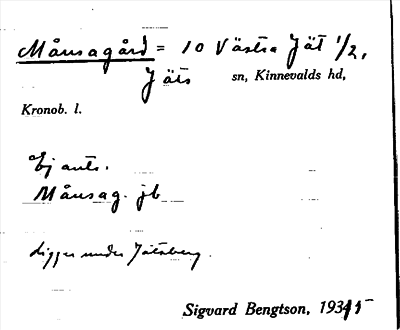 Månsagård = 10 Västra Jät 1/2,
Jäts sn, Kinnevalds hd,
Kronob. l.
Ej ant.
Månsag. jb
Ligger under Jätsberg.
Sigvard Bengtson, 1935